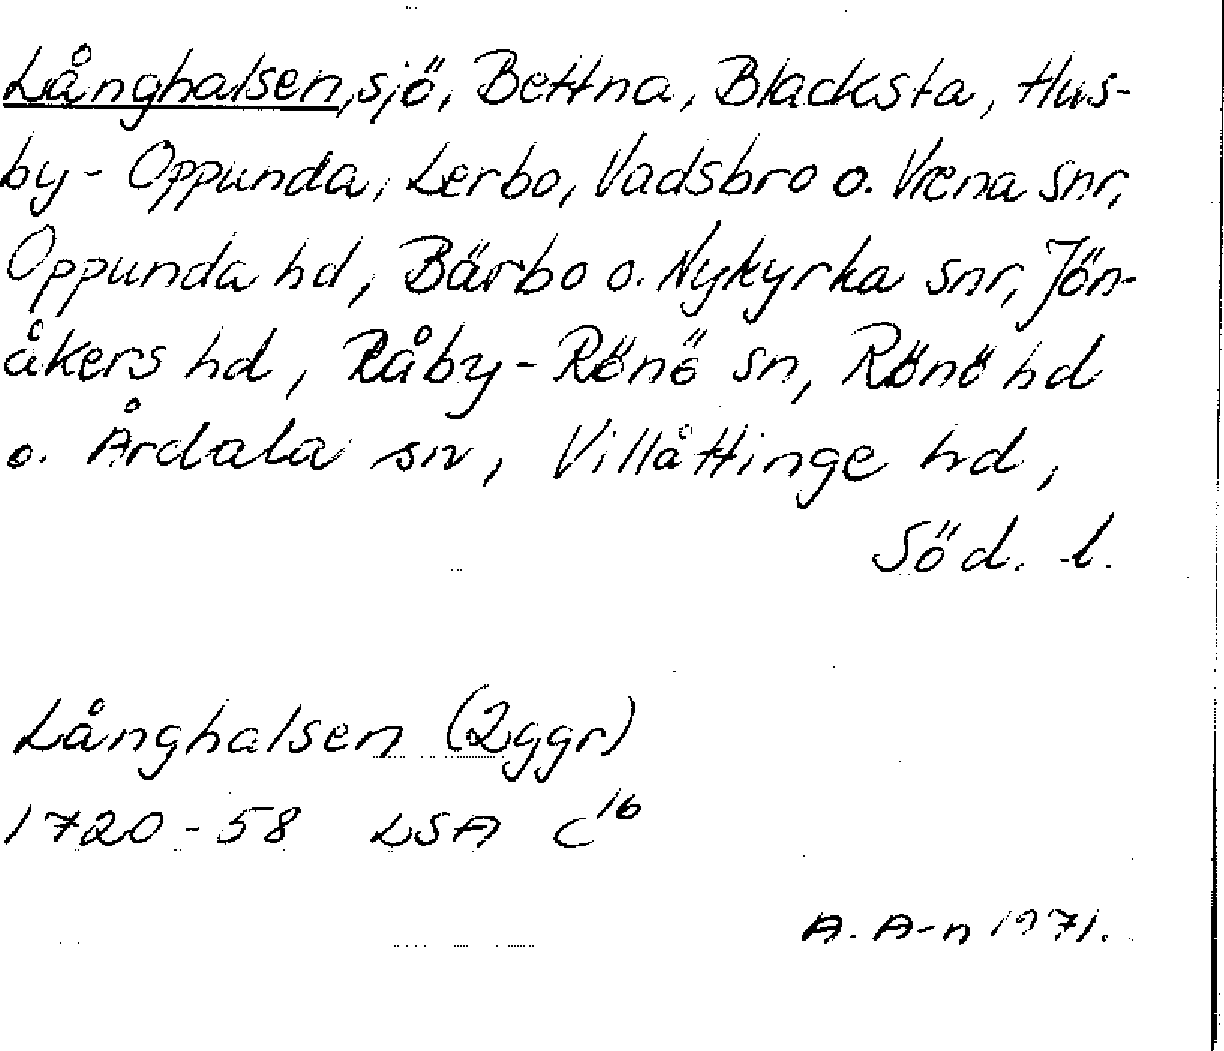 Långhalsen, sjö, Bettna, Blacksta, Hus-
by-Oppunda, Lerbo, Vadsbro o. Vrena snr,
Oppunda hd, Bärbo o. Nykyrka snr, Jön-
åkers hd, Råby-Rönö sn, Rönö hd
o. Årdala sn, Villåttinge hd,
Söd. l.
Långhalsen (2ggr)
1720-58 LSA C16
A. A-n 1971.